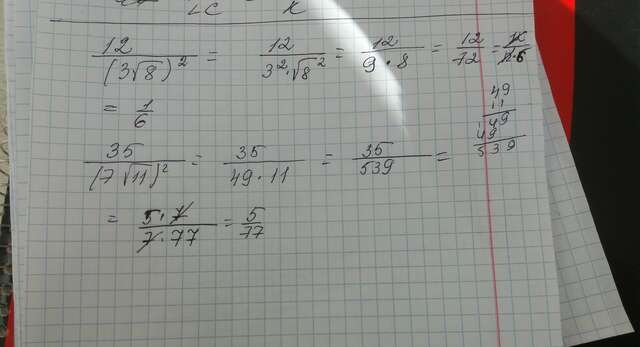 LC K
12/(3√8)² = 12/3²·√8² = 12/9·8 = 12/72 = 12/12·6
= 1/6
35/(7√11)² = 35/49·11 = 35/539 =
49
11
49
49
539
= 5·7/7·77 = 5/77